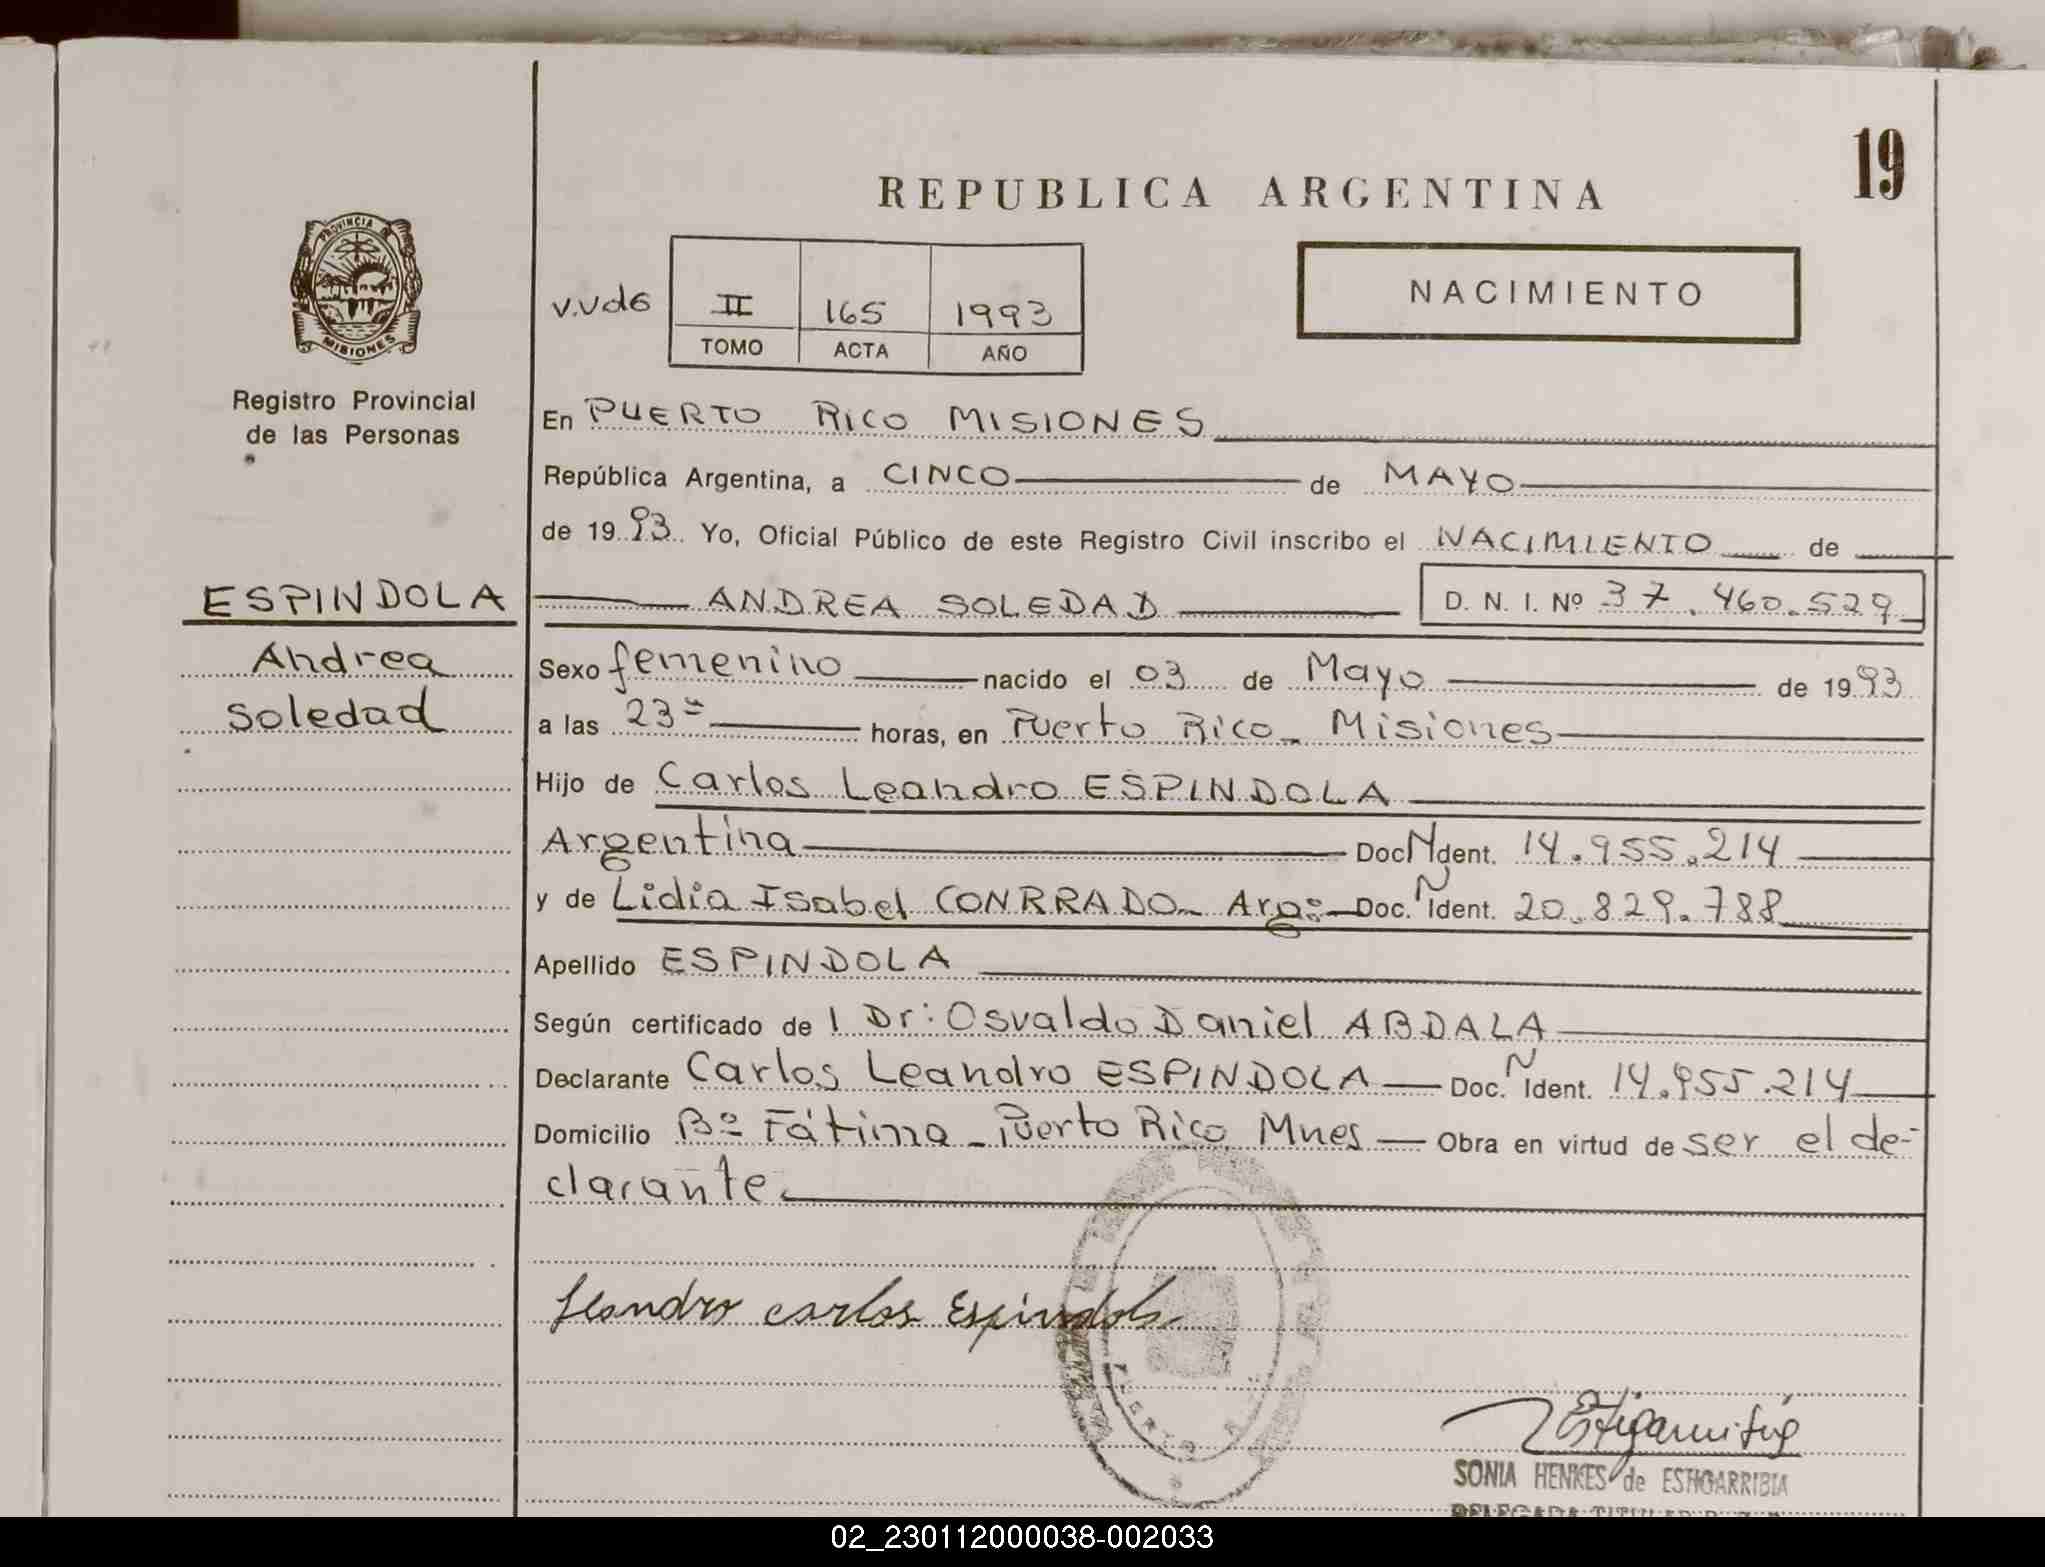 19
REPUBLICA ARGENTINA
PROVINCIA DE
MISIONES
Registro Provincial
de las Personas
V.Vd6
II 165 1993
TOMO ACTA AÑO
NACIMIENTO
En PUERTO RICO MISIONES
República Argentina, a CINCO de MAYO
de 1993 Yo, Oficial Público de este Registro Civil inscribo el NACIMIENTO de
ESPINDOLA
Andrea
Soledad
ANDREA SOLEDAD D. N. I. Nº 37.460.529
Sexo femenino nacido el 03 de Mayo de 1993
a las 23 horas, en Puerto Rico - Misiones
Hijo de Carlos Leandro ESPINDOLA
Argentina Doc. N Ident. 14.955.214
y de Lidia Isabel CONRRADO - Arg: Doc. Ñ Ident. 20.829.788
Apellido ESPINDOLA
Según certificado de l Dr: Osvaldo Daniel ABDALA
Declarante Carlos Leandro ESPINDOLA Doc. Ñ Ident. 14.955.214
Domicilio Bº Fátima - Puerto Rico Mnes Obra en virtud de ser el de-
clarante
Leandro Carlos Espindola
Estigarribia
SONIA HENKES de ESTIGARRIBIA
DELEGADA TITULAR
02_230112000038-002033